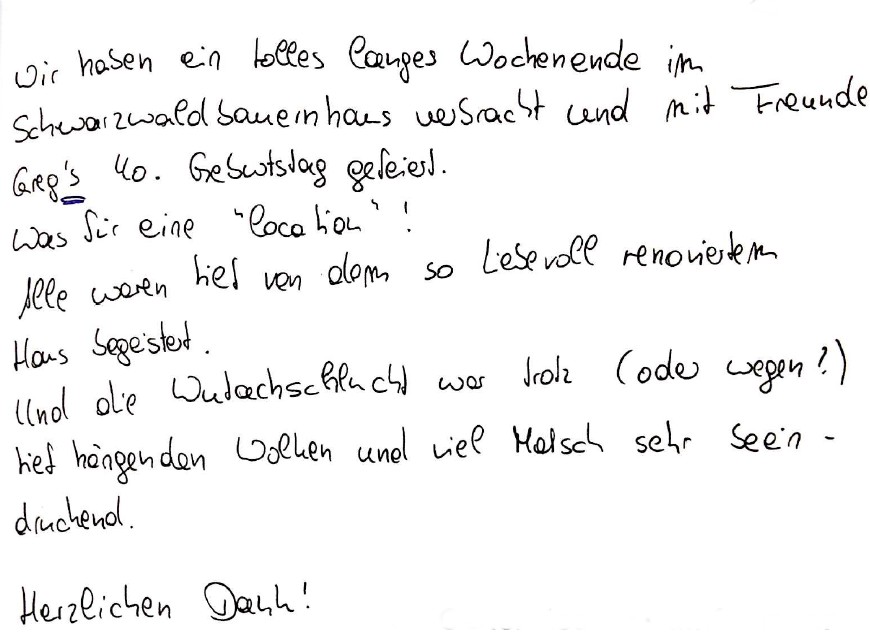 Wir haben ein tolles langes Wochenende im
Schwarzwaldbauernhaus verbracht und mit Freunde
Greg's 40. Geburtstag gefeiert.
Was für eine "location" !
Alle waren tief von dem so Liebevoll renoviertem
Haus begeistert.
Und die Wutachschlucht war trotz (oder wegen?)
tief hängenden Wolken und viel Matsch sehr beein-
druckend.
Herzlichen Dank!